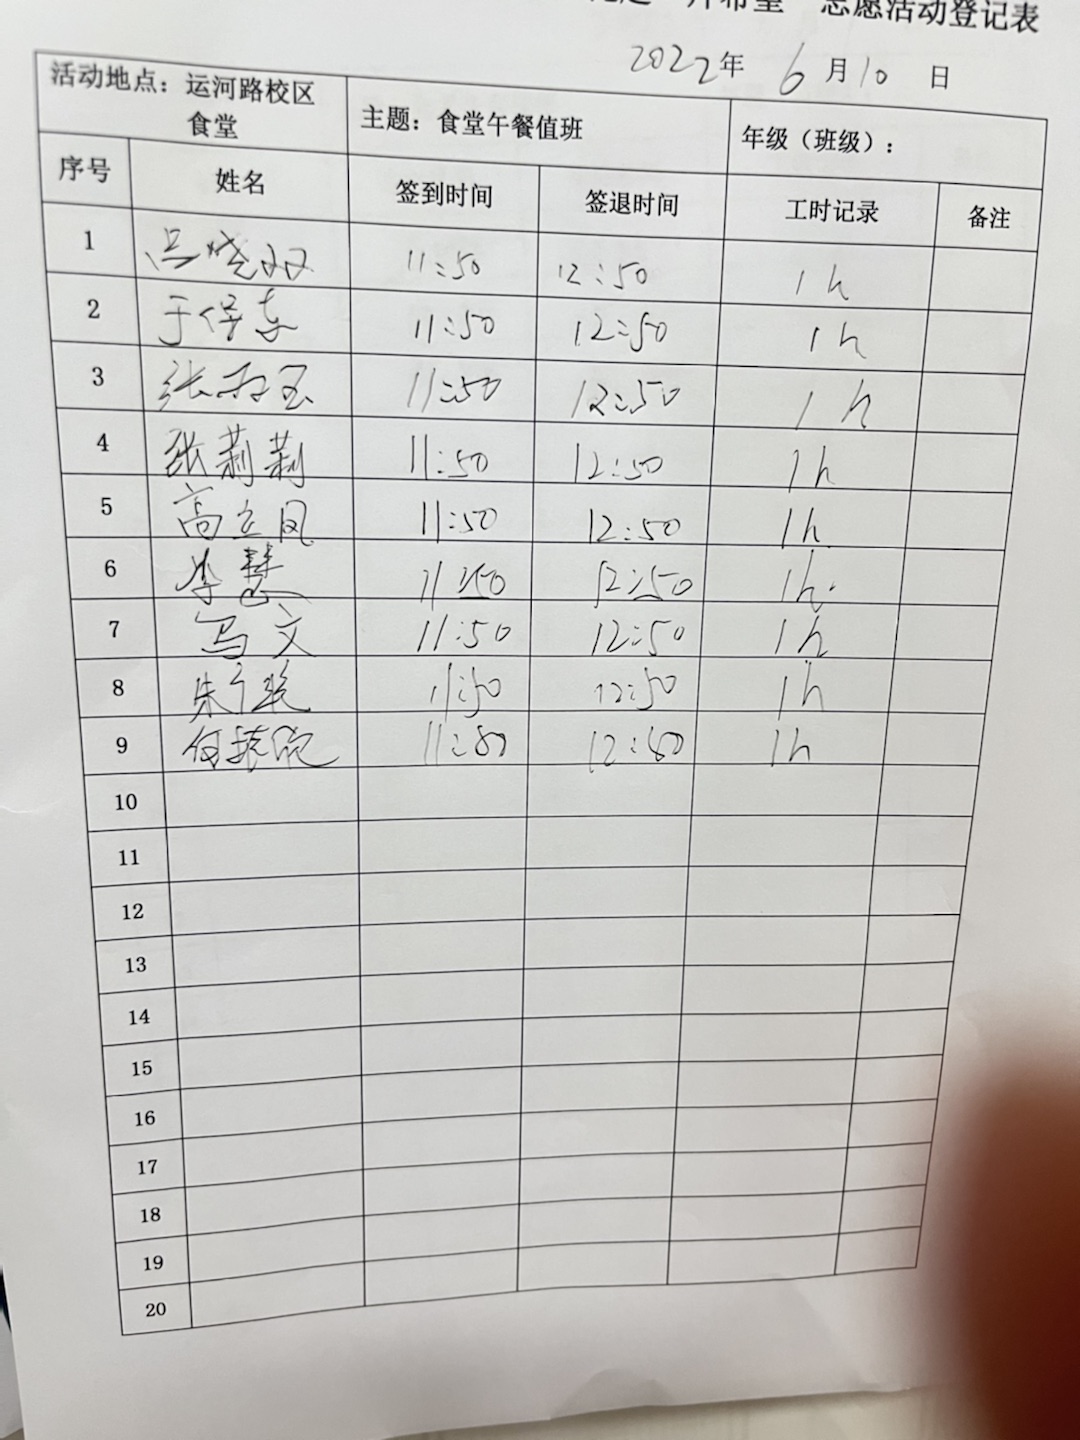 片希望" 志愿活动登记表
2022年 6月10日
活动地点：运河路校区食堂 主题：食堂午餐值班 年级（班级）：
序号 姓名 签到时间 签退时间 工时记录 备注
1 吕晓双 11:50 12:50 1h
2 于保 11:50 12:50 1h
3 张 玉 11:50 12:50 1h
4 张莉莉 11:50 12:50 1h
5 高立凤 11:50 12:50 1h
6 李慧 11:50 12:50 1h.
7 马文 11:50 12:50 1h
8 朱 11:50 12:50 1h
9 何 11:50 12:50 1h
10
11
12
13
14
15
16
17
18
19
20